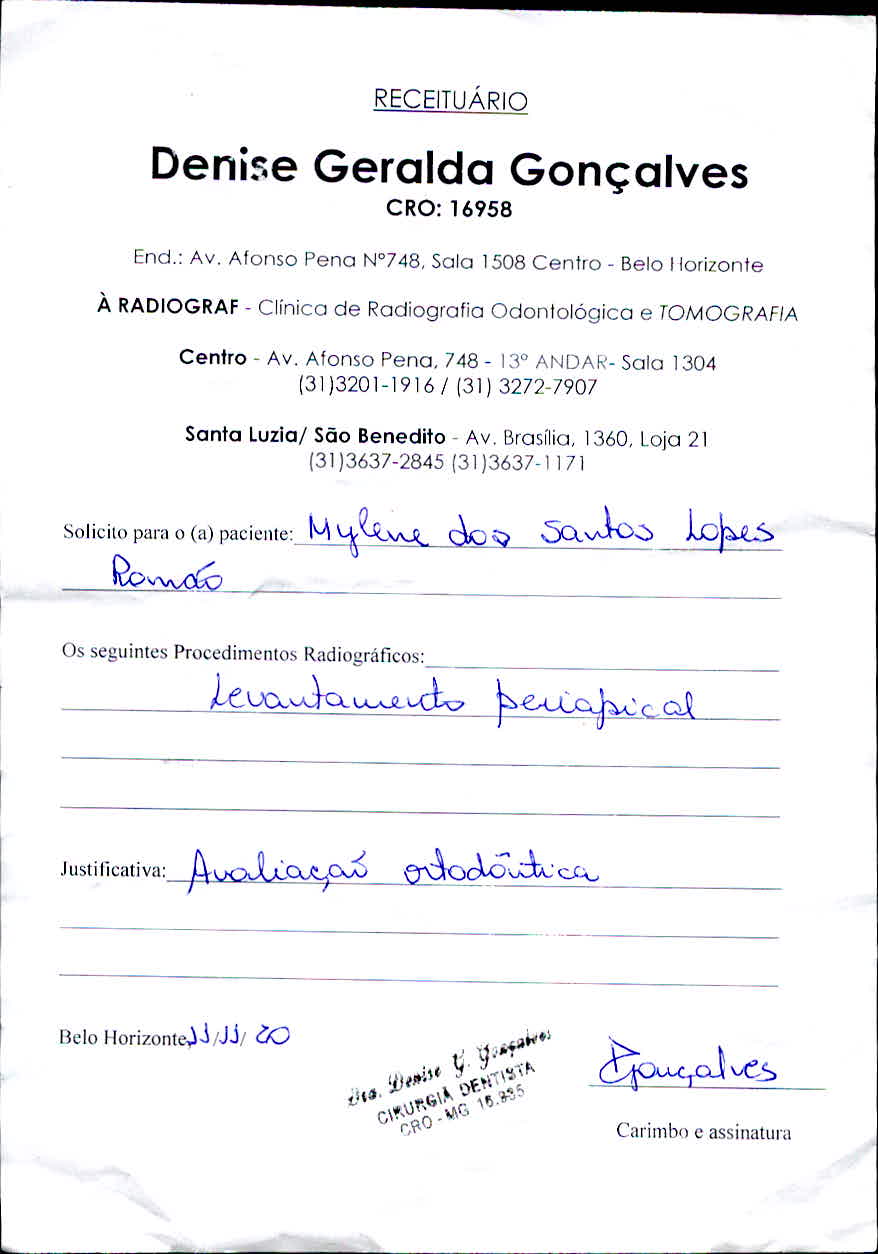 RECEITUÁRIO
Denise Geralda Gonçalves
CRO: 16958
End.: Av. Afonso Pena Nº748, Sala 1508 Centro - Belo Horizonte
À RADIOGRAF - Clínica de Radiografia Odontológica e TOMOGRAFIA
Centro - Av. Afonso Pena, 748 - 13º ANDAR- Sala 1304
(31)3201-1916 / (31) 3272-7907
Santa Luzia/ São Benedito - Av. Brasília, 1360, Loja 21
(31)3637-2845 (31)3637-1171
Solicito para o (a) paciente: Mylene dos Santos Lopes
Romão
Os seguintes Procedimentos Radiográficos:
Levantamento periapical
Justificativa: Avaliação ortodôntica
Belo Horizonte, 11/11/20
Dra. Denise G. Gonçalves
CIRURGIÃ DENTISTA
CRO - MG
DGonçalves
Carimbo e assinatura